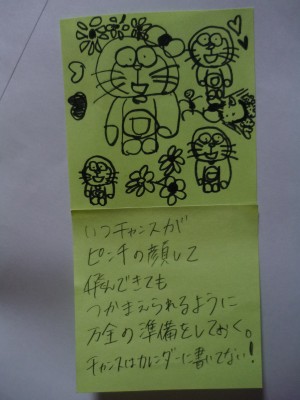 いつチャンスが
ピンチの顔して
飛んできても
つかまえられるように
万全の準備をしておく。
チャンスはカレンダーに書いてない!